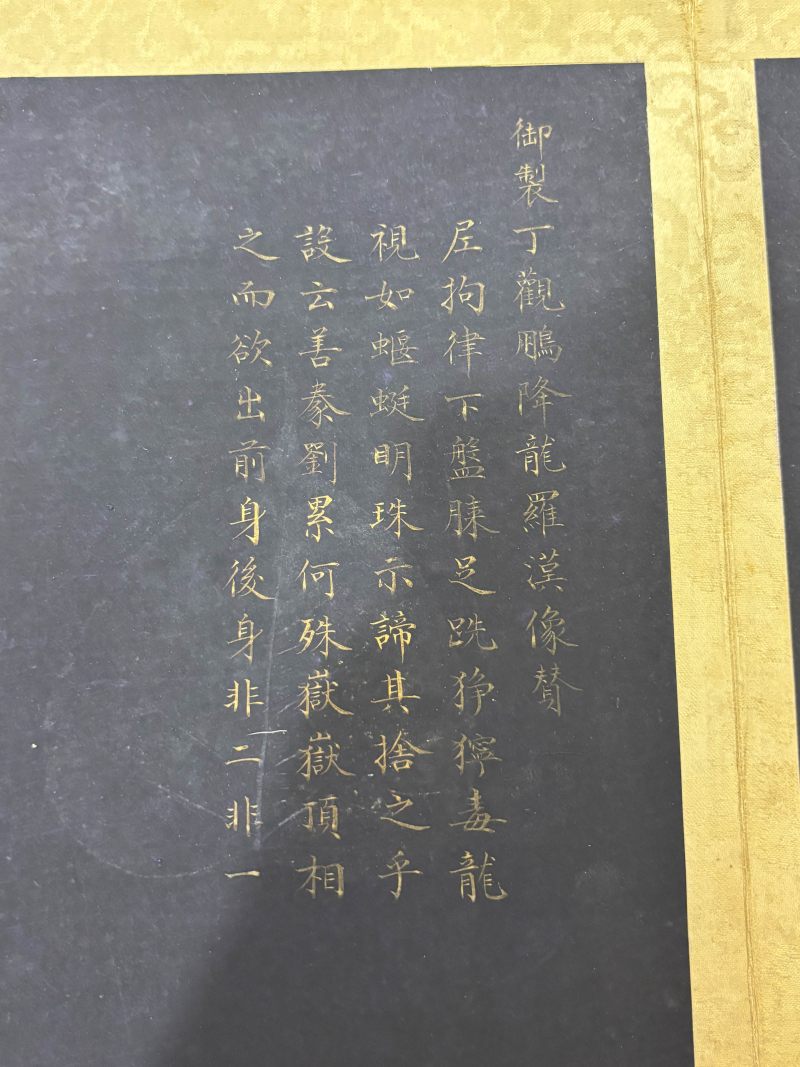 御製丁觀鵬降龍羅漢像贊
尼拘律下盤膝足跣狰獰毒龍
視如蝘蜓明珠示諦其捨之乎
設云善豢劉累何殊嶽嶽頂相
之而欲出前身後身非二非一